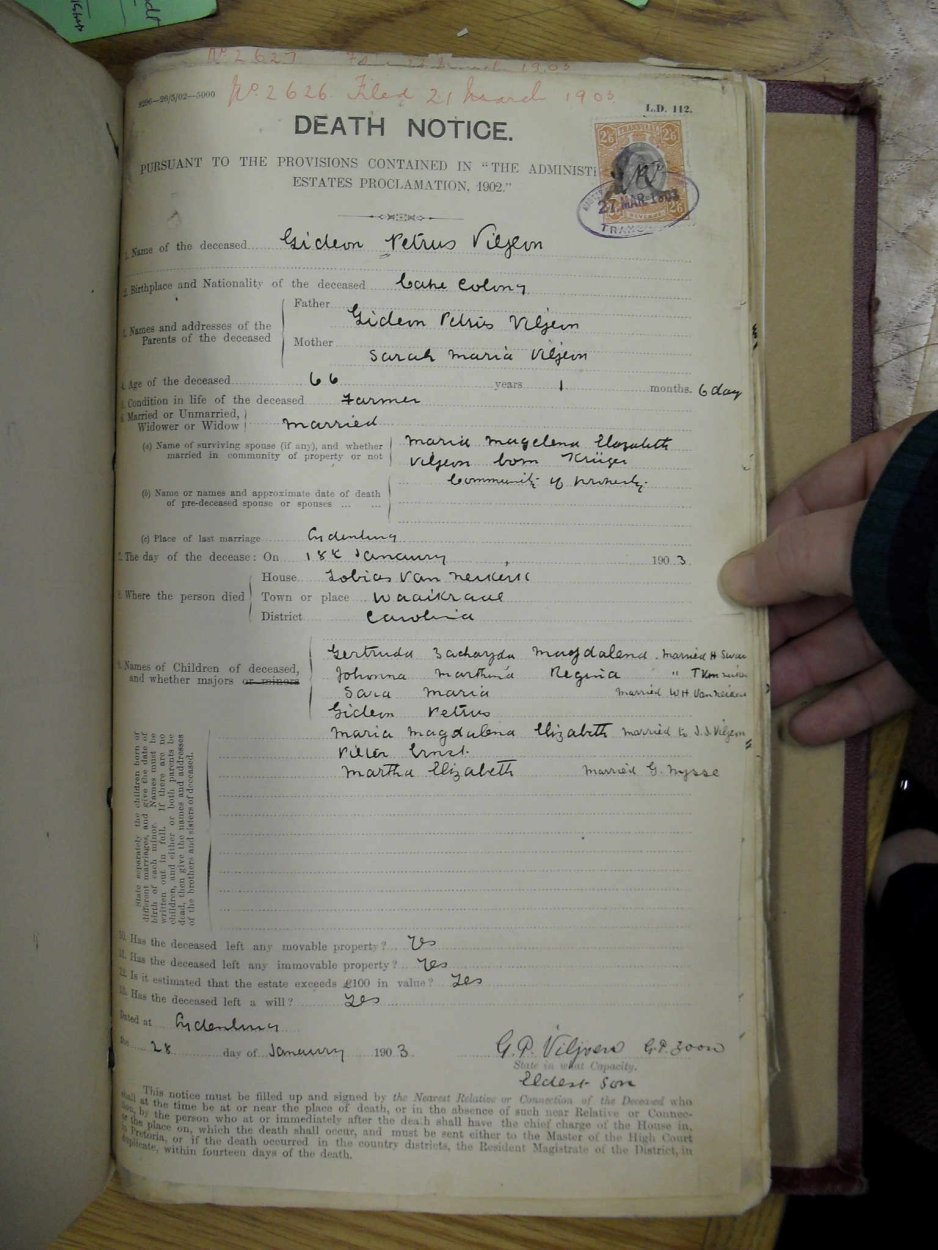 No. 2627
1903
8290—26/5/02—5000
No. 2626. Filed 21 March 1903
L.D. 112.
DEATH NOTICE.
PURSUANT TO THE PROVISIONS CONTAINED IN "THE ADMINISTI
ESTATES PROCLAMATION, 1902."
TRANSVAAL
2/6 2/6
27. MAR 1903
REVENUE 2/6
TRANSVAAL
1. Name of the deceased Gideon Petrus Viljoen
2. Birthplace and Nationality of the deceased Cape Colony
3. Names and addresses of the Parents of the deceased
Father Gideon Petrus Viljoen
Mother Sarah Maria Viljoen
4. Age of the deceased 66 years 1 months. 6 day
5. Condition in life of the deceased Farmer
6. Married or Unmarried, Widower or Widow Married
(a) Name of surviving spouse (if any), and whether married in community of property or not
Maria Magelena Elizabeth
Viljoen born Krüger
Community of property.
(b) Name or names and approximate date of death of pre-deceased spouse or spouses ... ...
(c) Place of last marriage Lydenburg
7. The day of the decease: On 18t January 1903.
8. Where the person died
House Tobias Van
Town or place Waaikraal
District Carolina
9. Names of Children of deceased, and whether majors or minors
Gertruda Zacharyda Magdalena. Married H
Johanna Marthina Regina "
Sara Maria Married W H Van
Gideon Petrus
Maria Magdalena Elizabeth married to J.J. Viljoen
Pieter Ernst.
Martha Elizabeth Married G.
State separately the children born of
different marriages, and give the date of
birth of each minor. Names must be
written out in full. If there are no
children, and either or both parents be
dead, then give the names and addresses
of the brothers and sisters of deceased.
10. Has the deceased left any movable property? Yes
11. Has the deceased left any immovable property? Yes
12. Is it estimated that the estate exceeds £100 in value? Yes
13. Has the deceased left a will? Yes
Dated at Lydenburg
the 28 day of January 1903.
G.P. Viljoen G.P. Zoon
State in what Capacity.
Eldest Son
This notice must be filled up and signed by the Nearest Relative or Connection of the Deceased who
shall at the time be at or near the place of death, or in the absence of such near Relative or Connec-
tion, by the person who at or immediately after the death shall have the chief charge of the House in,
or the place on, which the death shall occur, and must be sent either to the Master of the High Court
in Pretoria, or if the death occurred in the country districts, the Resident Magistrate of the District, in
duplicate, within fourteen days of the death.